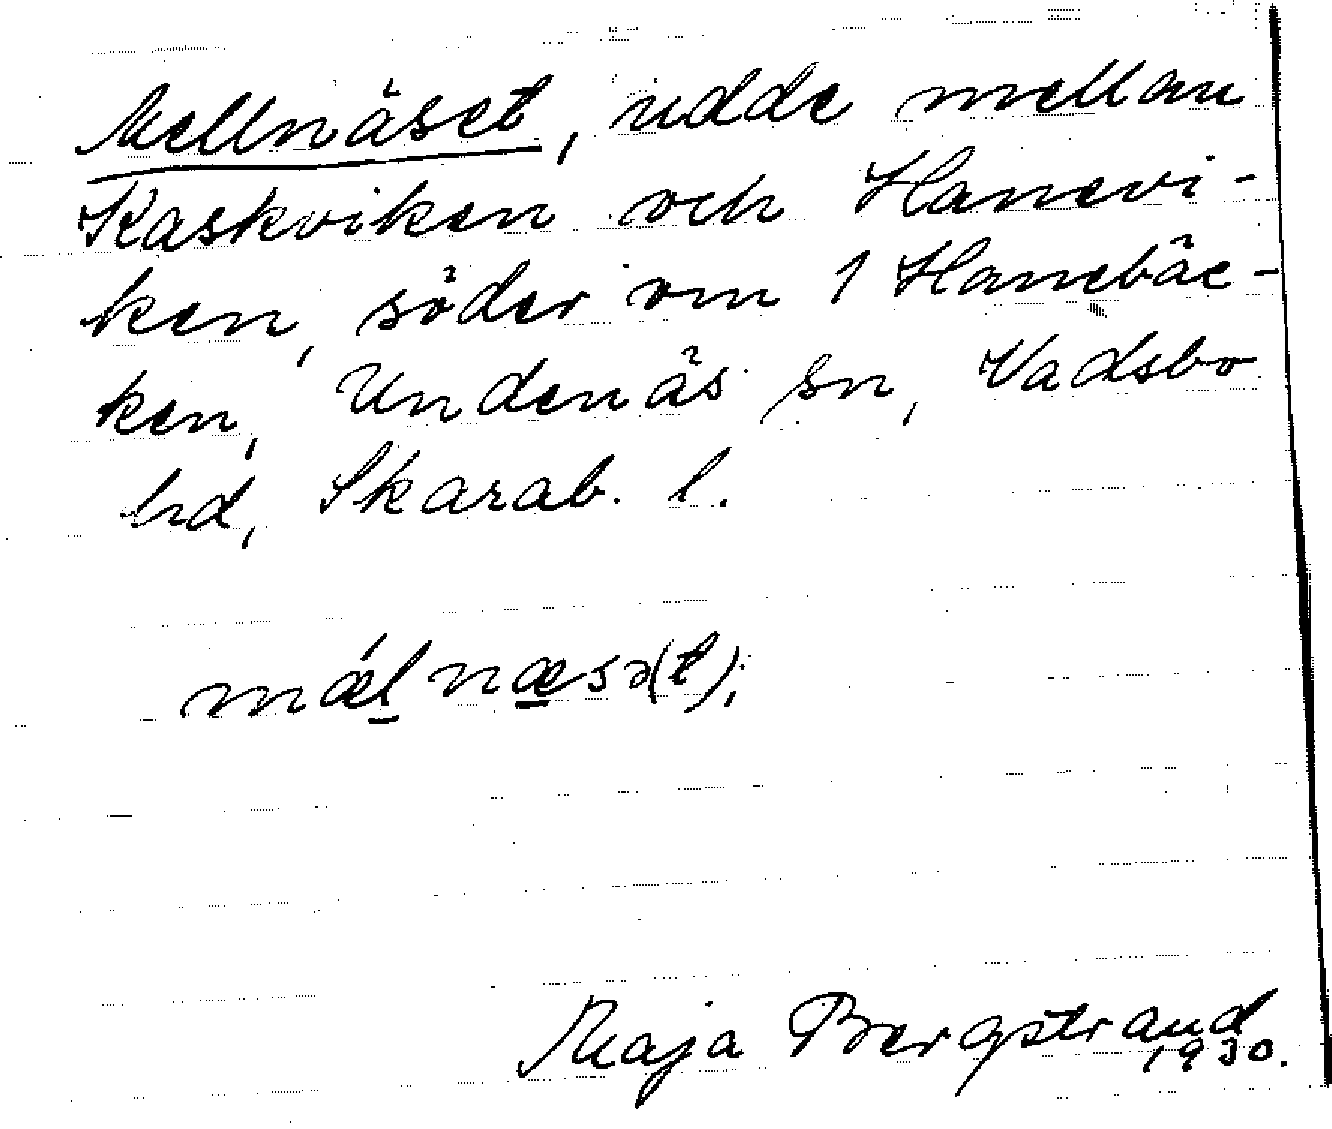 Mellnäset, udde mellan
Kaskviken och Hanevi-
ken, söder om 1 Hanebäc-
ken, Undenäs sn, Vadsbo
hd, Skarab. l.
mǽl næsə(t);
Maja Bergstrand
1930.